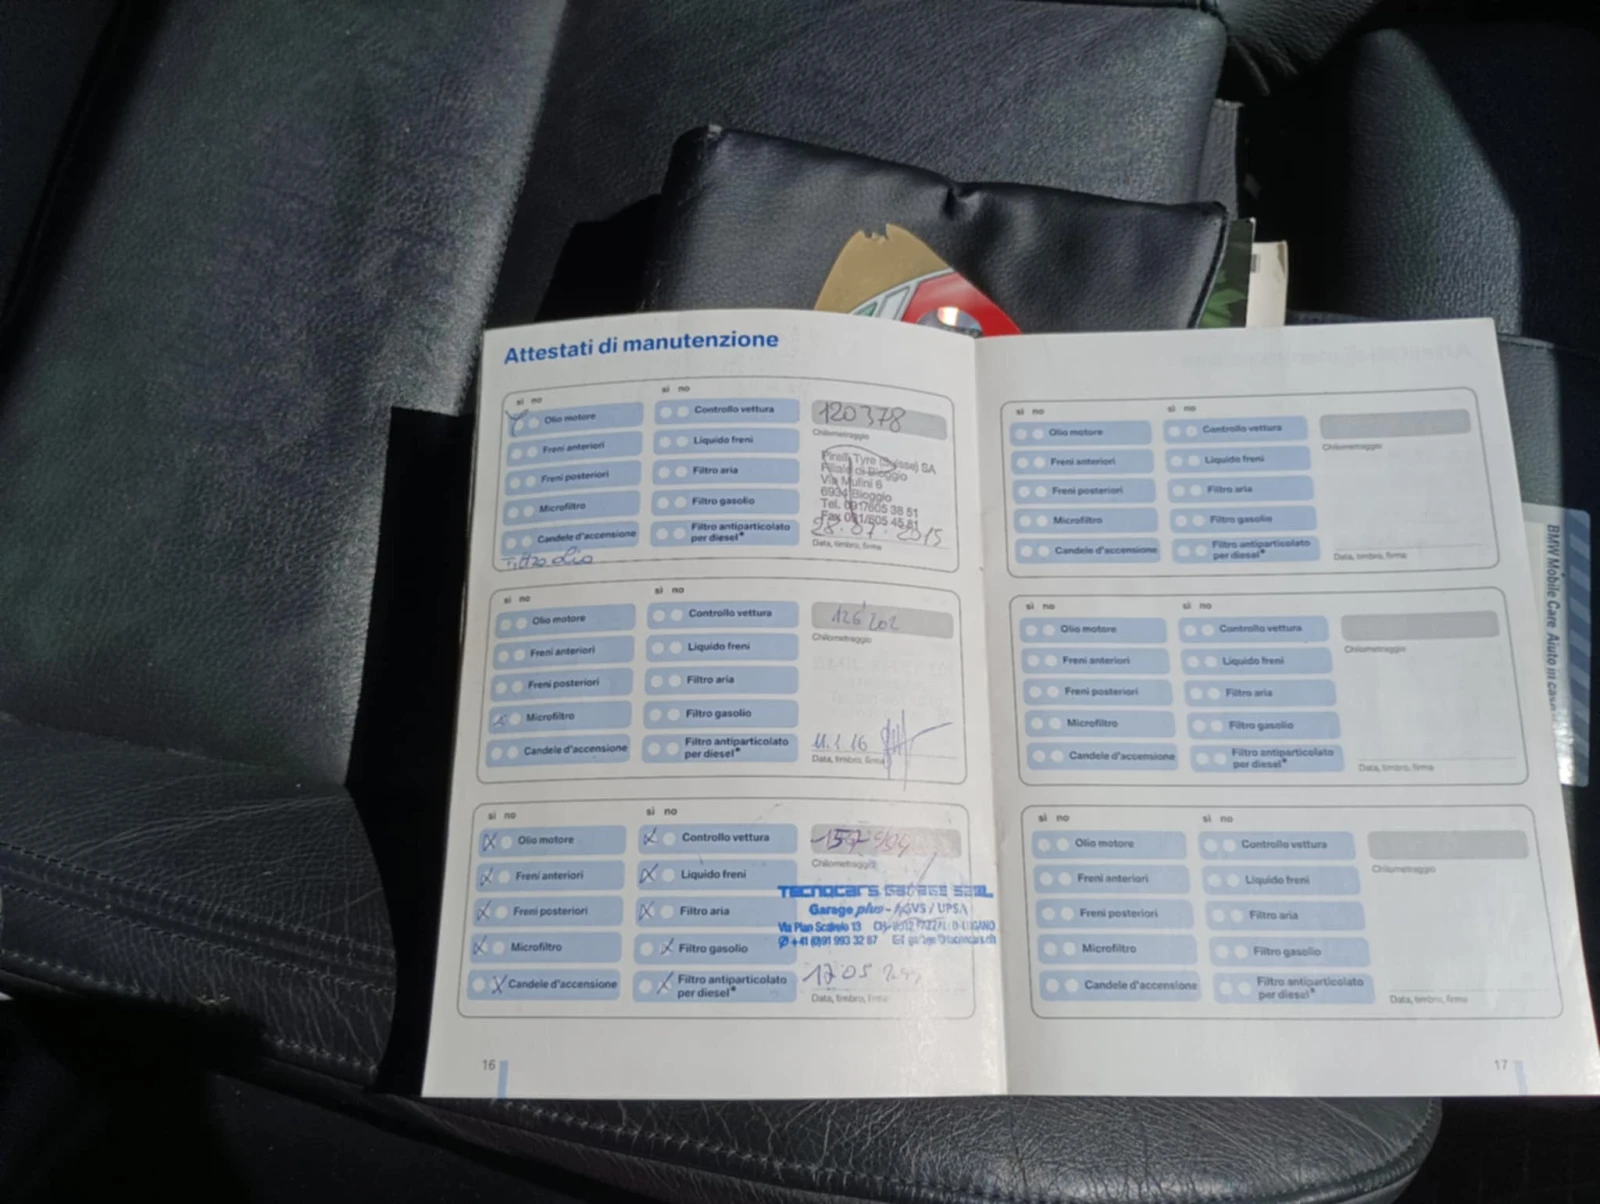 Attestati di manutenzione
sì no
sì no
Olio motore
Controllo vettura
120378
Chilometraggio
Freni anteriori
Liquido freni
Freni posteriori
Filtro aria
Microfiltro
Filtro gasolio
Candele d'accensione
Filtro antiparticolato
per diesel*
Pirelli Tyre (Suisse) SA
Filiale di Bioggio
Via Mulini 6
6934 Bioggio
Tel. 091/605 38 51
Fax 091/605 45 81
28.07.2015
Data, timbro, firma
Filtro olio
sì no
sì no
Olio motore
Controllo vettura
126202
Chilometraggio
Freni anteriori
Liquido freni
Freni posteriori
Filtro aria
Microfiltro
Filtro gasolio
Candele d'accensione
Filtro antiparticolato
per diesel*
11.1.16
Data, timbro, firma
sì no
sì no
Olio motore
Controllo vettura
Chilometraggio
Freni anteriori
Liquido freni
Freni posteriori
Filtro aria
Microfiltro
Filtro gasolio
Candele d'accensione
Filtro antiparticolato
per diesel*
TECNOCARS GARAGE SAGL
Garage plus - AGVS / UPSA
Via Pian Scairolo 13
+41 (0)91 993 32 87
Data, timbro, firma
16
sì no
sì no
Olio motore
Controllo vettura
Chilometraggio
Freni anteriori
Liquido freni
Freni posteriori
Filtro aria
Microfiltro
Filtro gasolio
Candele d'accensione
Filtro antiparticolato
per diesel*
Data, timbro, firma
sì no
sì no
Olio motore
Controllo vettura
Chilometraggio
Freni anteriori
Liquido freni
Freni posteriori
Filtro aria
Microfiltro
Filtro gasolio
Candele d'accensione
Filtro antiparticolato
per diesel*
Data, timbro, firma
sì no
sì no
Olio motore
Controllo vettura
Chilometraggio
Freni anteriori
Liquido freni
Freni posteriori
Filtro aria
Microfiltro
Filtro gasolio
Candele d'accensione
Filtro antiparticolato
per diesel*
Data, timbro, firma
17
BMW Mobile Care Aiuto in caso